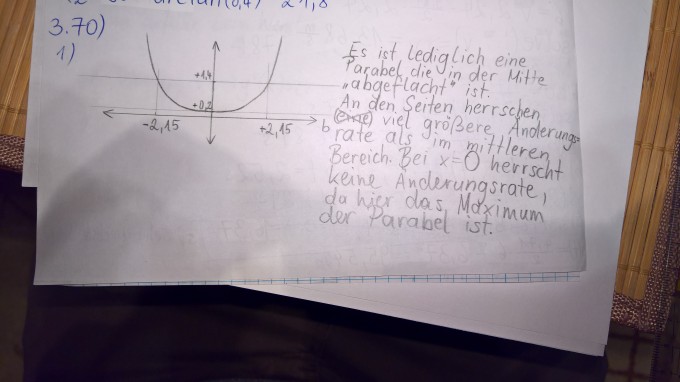 arctan(0,4) 21,8
3.70)
1)
+1,4
+0,2
-2,15
+2,15
b
Es ist lediglich eine
Parabel, die in der Mitte
„abgeflacht" ist.
An den Seiten herrschen
viel größere Änderungs-
rate als im mittleren
Bereich. Bei x=0 herrscht
keine Änderungsrate,
da hier das Maximum
der Parabel ist.